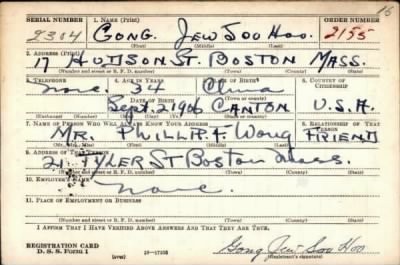 16
SERIAL NUMBER 1. NAME (Print) ORDER NUMBER
2304 GONG. JEW SOO HOO. 2155
(First) (Middle) (Last)
2. ADDRESS (Print)
17 HUDSON ST. BOSTON MASS.
(Number and street or R. F. D. number) (Town) (County) (State)
3. TELEPHONE 4. AGE IN YEARS 5. PLACE OF BIRTH 6. COUNTRY OF CITIZENSHIP
none. 34 China
DATE OF BIRTH (Town or county)
Sept. 2 1906 CANTON U.S.A.
(Exchange) (Number) (Mo.) (Day) (Yr.) (State or country)
7. NAME OF PERSON WHO WILL ALWAYS KNOW YOUR ADDRESS 8. RELATIONSHIP OF THAT PERSON
MR. PHILLIP. F Wong FRIEND
(Mr., Mrs., Miss) (First) (Middle) (Last)
9. ADDRESS OF THAT PERSON
21 TYLER ST BOSTON Mass.
(Number and street or R. F. D. number) (Town) (County) (State)
10. EMPLOYER'S NAME
none.
11. PLACE OF EMPLOYMENT OR BUSINESS
(Number and street or R. F. D. number) (Town) (County) (State)
I AFFIRM THAT I HAVE VERIFIED ABOVE ANSWERS AND THAT THEY ARE TRUE.
REGISTRATION CARD
D. S. S. FORM 1 (over) 16-17105 Gong Jew Soo Hoo
(Registrant's signature)